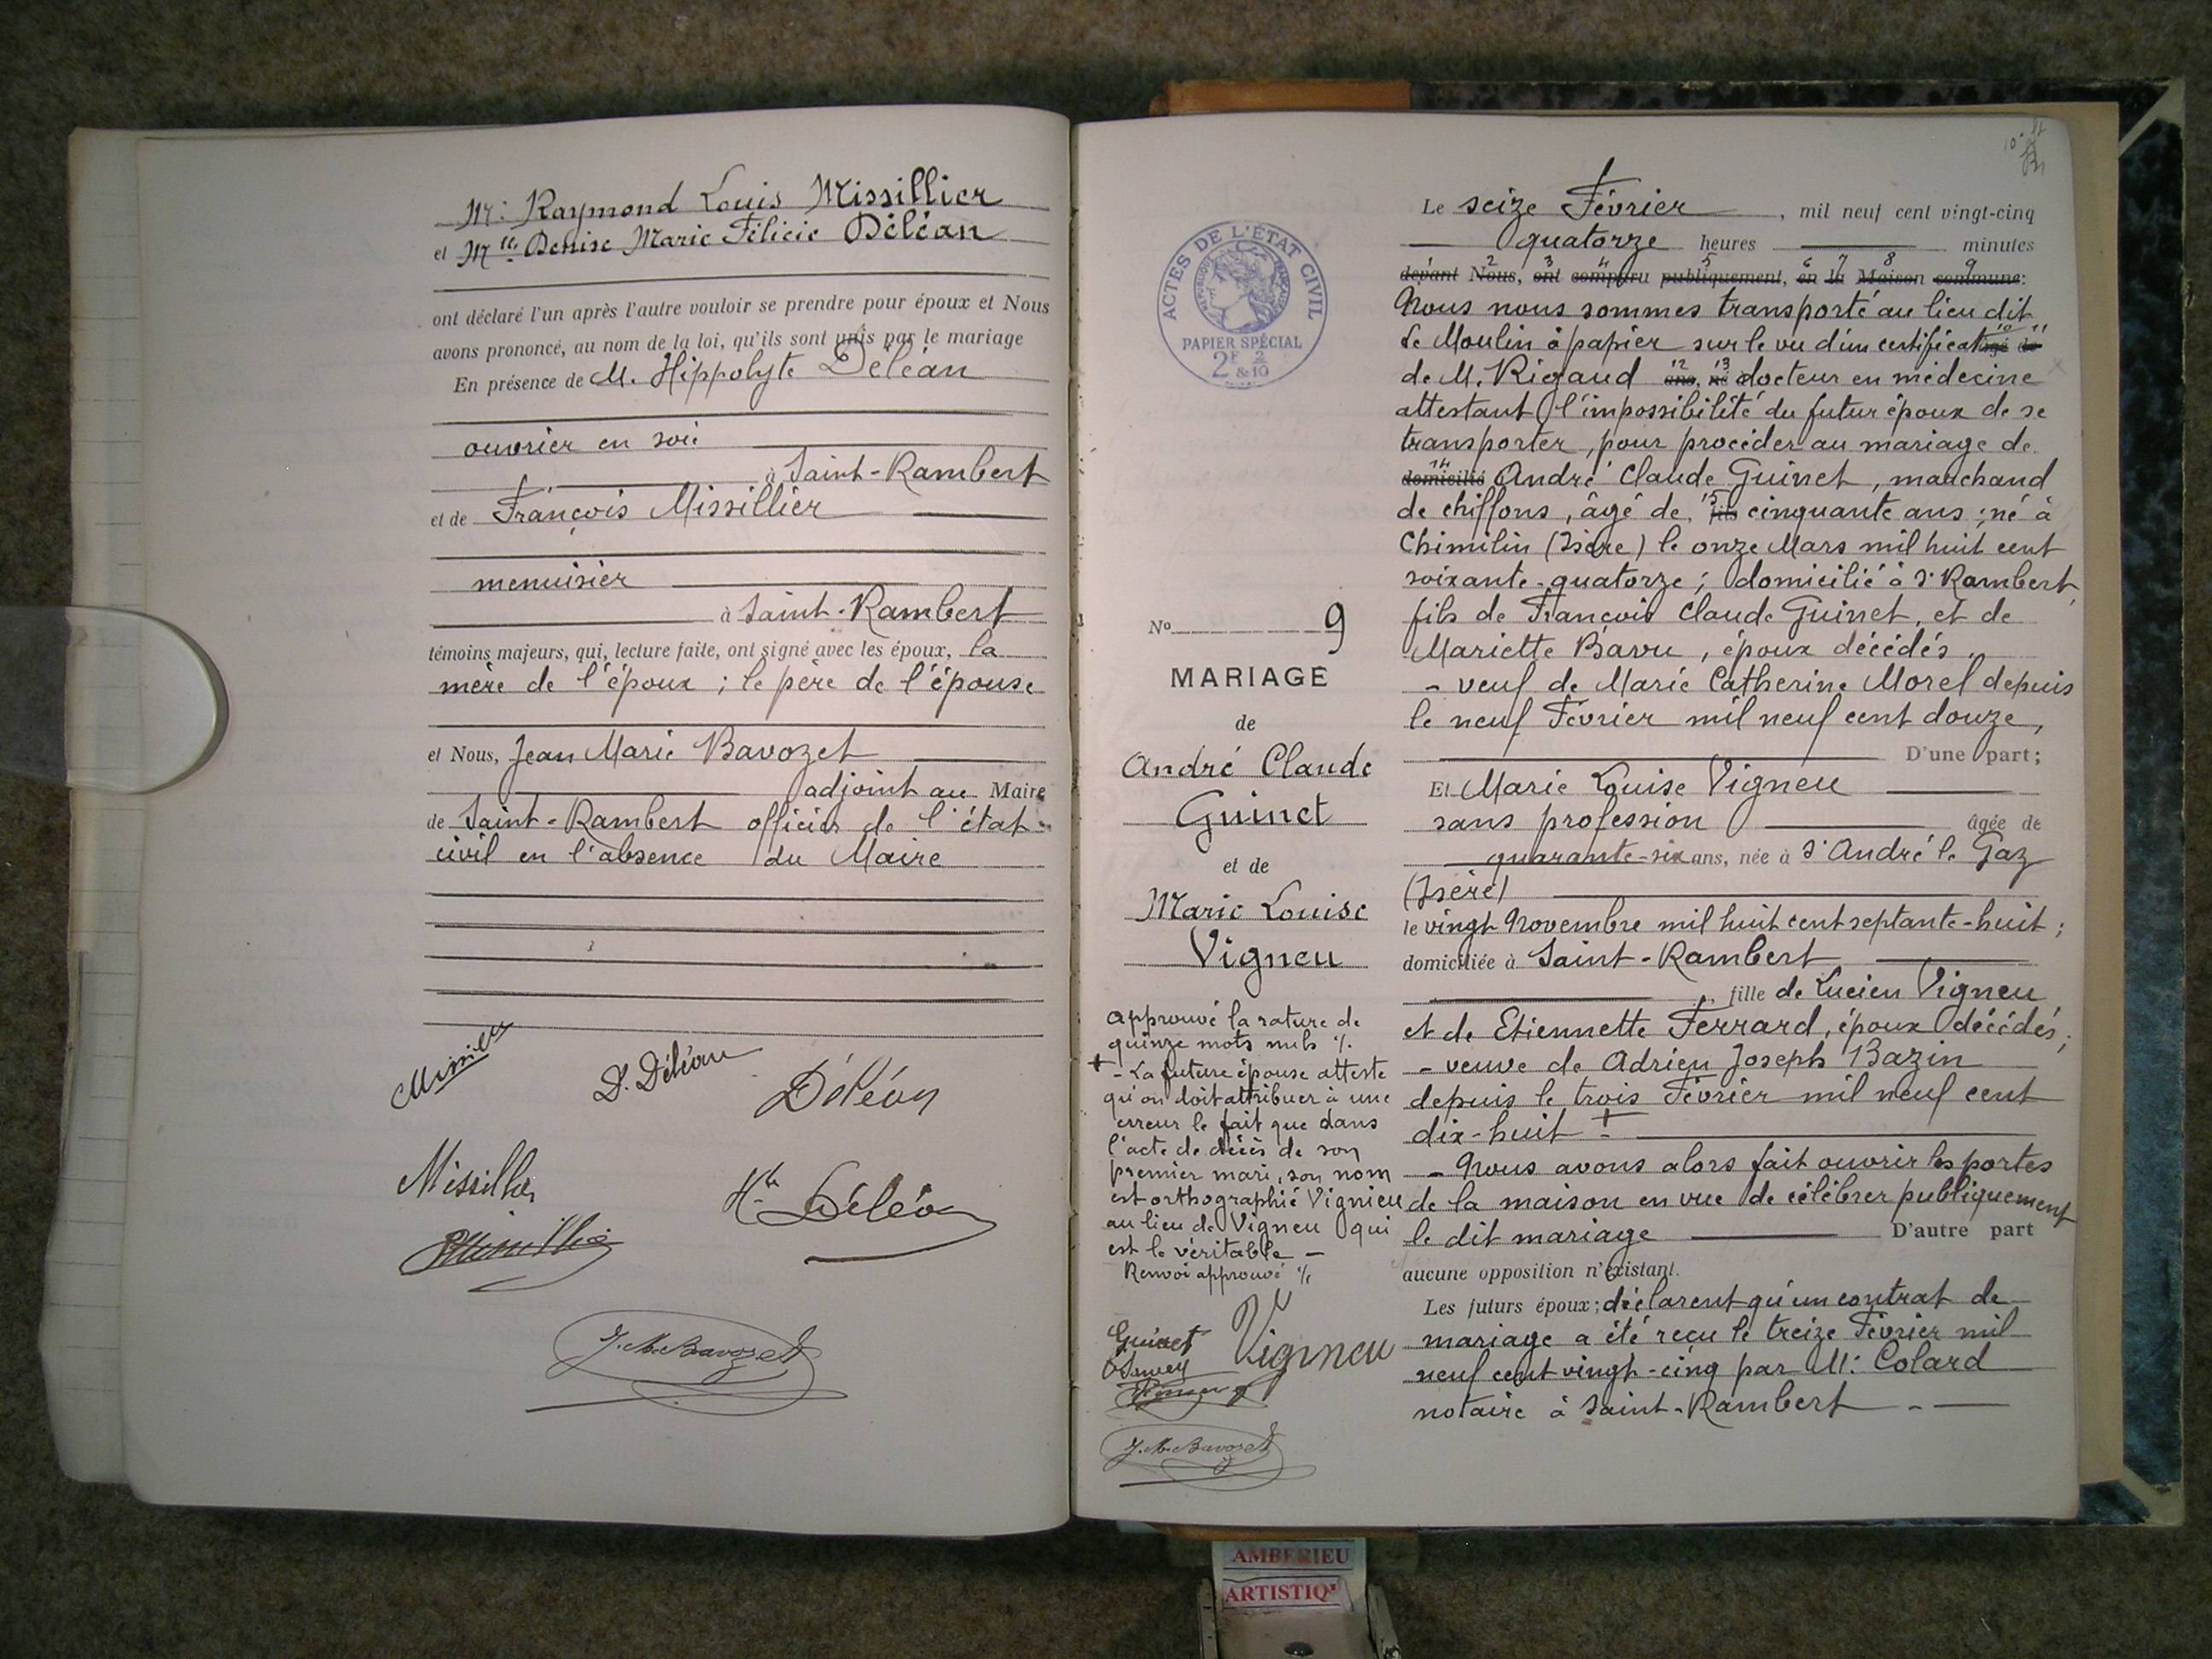 Mr: Raymond Louis Missillier
et Mlle Denise Marie Félicie Déléan
ont déclaré l'un après l'autre vouloir se prendre pour époux et Nous
avons prononcé, au nom de la loi, qu'ils sont unis par le mariage
En présence de M. Hippolyte Déléan
ouvrier en soie
à Saint-Rambert
et de François Missillier
menuisier
à Saint-Rambert
témoins majeurs, qui, lecture faite, ont signé avec les époux, la
mère de l'époux ; le père de l'épouse
et Nous, Jean Marie Bavozet
adjoint au Maire
de Saint-Rambert officier de l'état
civil en l'absence du Maire
D. Déléan
Déléan
Missillier
Hte Déléan
J. M. Bavozet
ACTES DE L'ÉTAT CIVIL
PAPIER SPÉCIAL
2F 2/10
No 9
MARIAGE
de
André Claude
Guinet
et de
Marie Louise
Vigneu
approuvé la rature de
quinze mots nuls %.
+ - La future épouse atteste
qu'on doit attribuer à une
erreur le fait que dans
l'acte de décès de son
premier mari, son nom
est orthographié Vignieu
au lieu de Vigneu qui
est le véritable -
Renvoi approuvé %
Guinet
Vigneu
J. M. Bavozet
Le seize Février, mil neuf cent vingt-cinq
quatorze heures minutes
devant Nous, ont comparu publiquement, en la Maison commune:
Nous nous sommes transporté au lieu dit
Le Moulin à papier sur le vu d'un certificat âgé de
de M. Rigaud ans, né docteur en médecine
attestant l'impossibilité du futur époux de se
transporter, pour procéder au mariage de
domicilié André Claude Guinet, marchand
de chiffons, âgé de fils cinquante ans ; né à
Chimilin (Isère) le onze Mars mil huit cent
soixante-quatorze ; domicilié à St Rambert,
fils de François Claude Guinet, et de
Mariette Bavu, époux décédés,
- veuf de Marie Catherine Morel depuis
le neuf Février mil neuf cent douze,
D'une part;
Et Marie Louise Vigneu
sans profession âgée de
quarante-six ans, née à St André le Gaz
(Isère)
le vingt Novembre mil huit cent septante-huit ;
domiciliée à Saint-Rambert
fille de Lucien Vigneu
et de Etiennette Ferrard, époux décédés ;
- veuve de Adrien Joseph Bazin
depuis le trois Février mil neuf cent
dix-huit +
- Nous avons alors fait ouvrir les portes
de la maison en vue de célébrer publiquement
le dit mariage D'autre part
aucune opposition n'existant.
Les futurs époux ; déclarent qu'un contrat de
mariage a été reçu le treize Février mil
neuf cent vingt-cinq par Me Colard
notaire à Saint-Rambert
AMBERIEU
ARTISTIQ